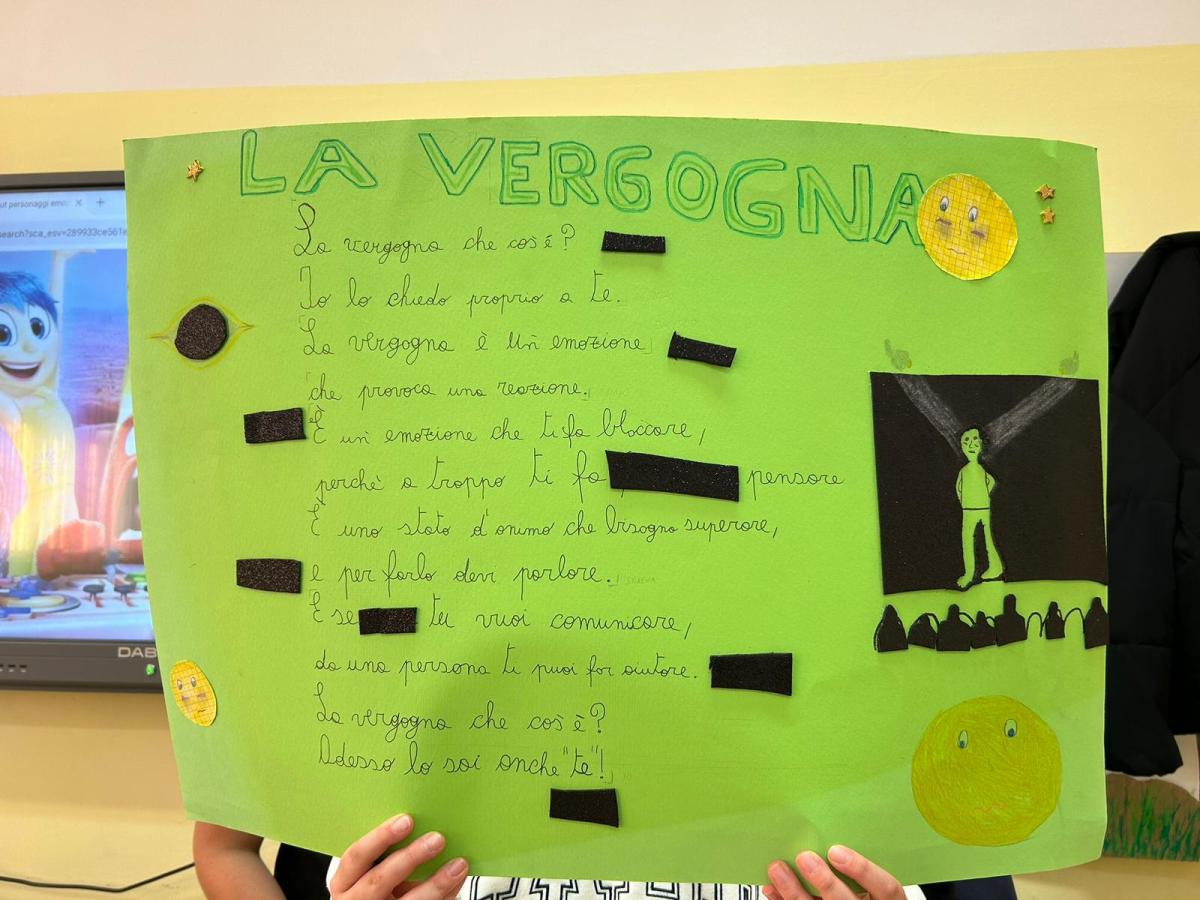 LA VERGOGNA
La vergogna che cos'é?
Io lo chiedo proprio a te.
La vergogna è un'emozione
che provoca una reazione.
È un'emozione che ti fa bloccare,
perchè a troppo ti fa pensare
È uno stato d'animo che bisogna superare,
e per farlo devi parlare.
E se tu vuoi comunicare,
da una persona ti puoi far aiutare.
La vergogna che cos'è?
Adesso lo sai anche "te"!
ut personaggi emo
search?sca_esv=289933ce561e
DAB